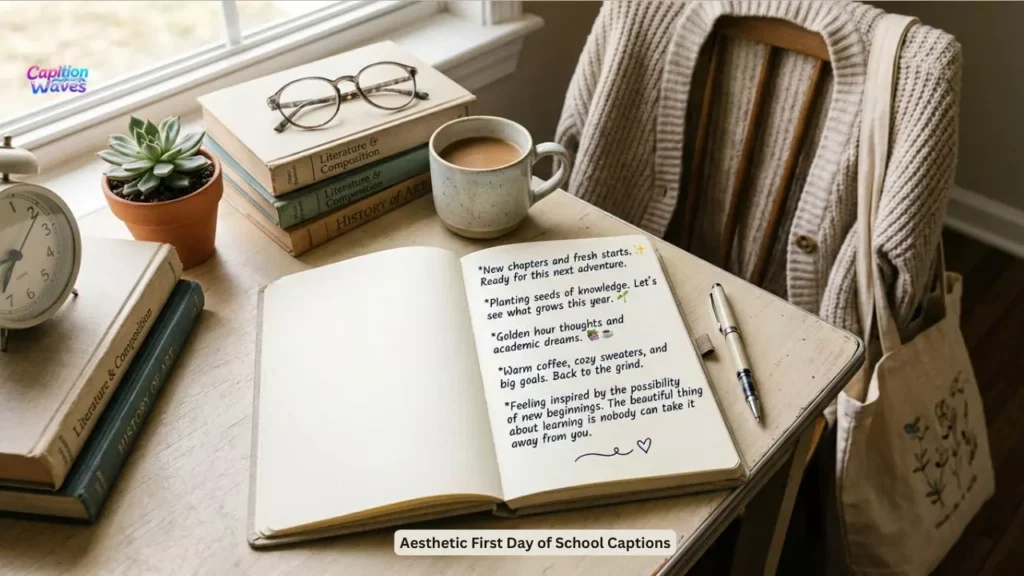 Capition
Waves
Literature &
Composition
Literature &
Composition
HISTORY OF ART
2
3
7
Literature & Composition
HISTORY OF ART
*New chapters and fresh starts. ✨
Ready for this next adventure.
*Planting seeds of knowledge. Let's
see what grows this year. 🌱
*Golden hour thoughts and
academic dreams. 📚☕
*Warm coffee, cozy sweaters, and
big goals. Back to the grind.
*Feeling inspired by the possibility
of new beginnings. The beautiful thing
about learning is nobody can take it
away from you.
Aesthetic First Day of School Captions